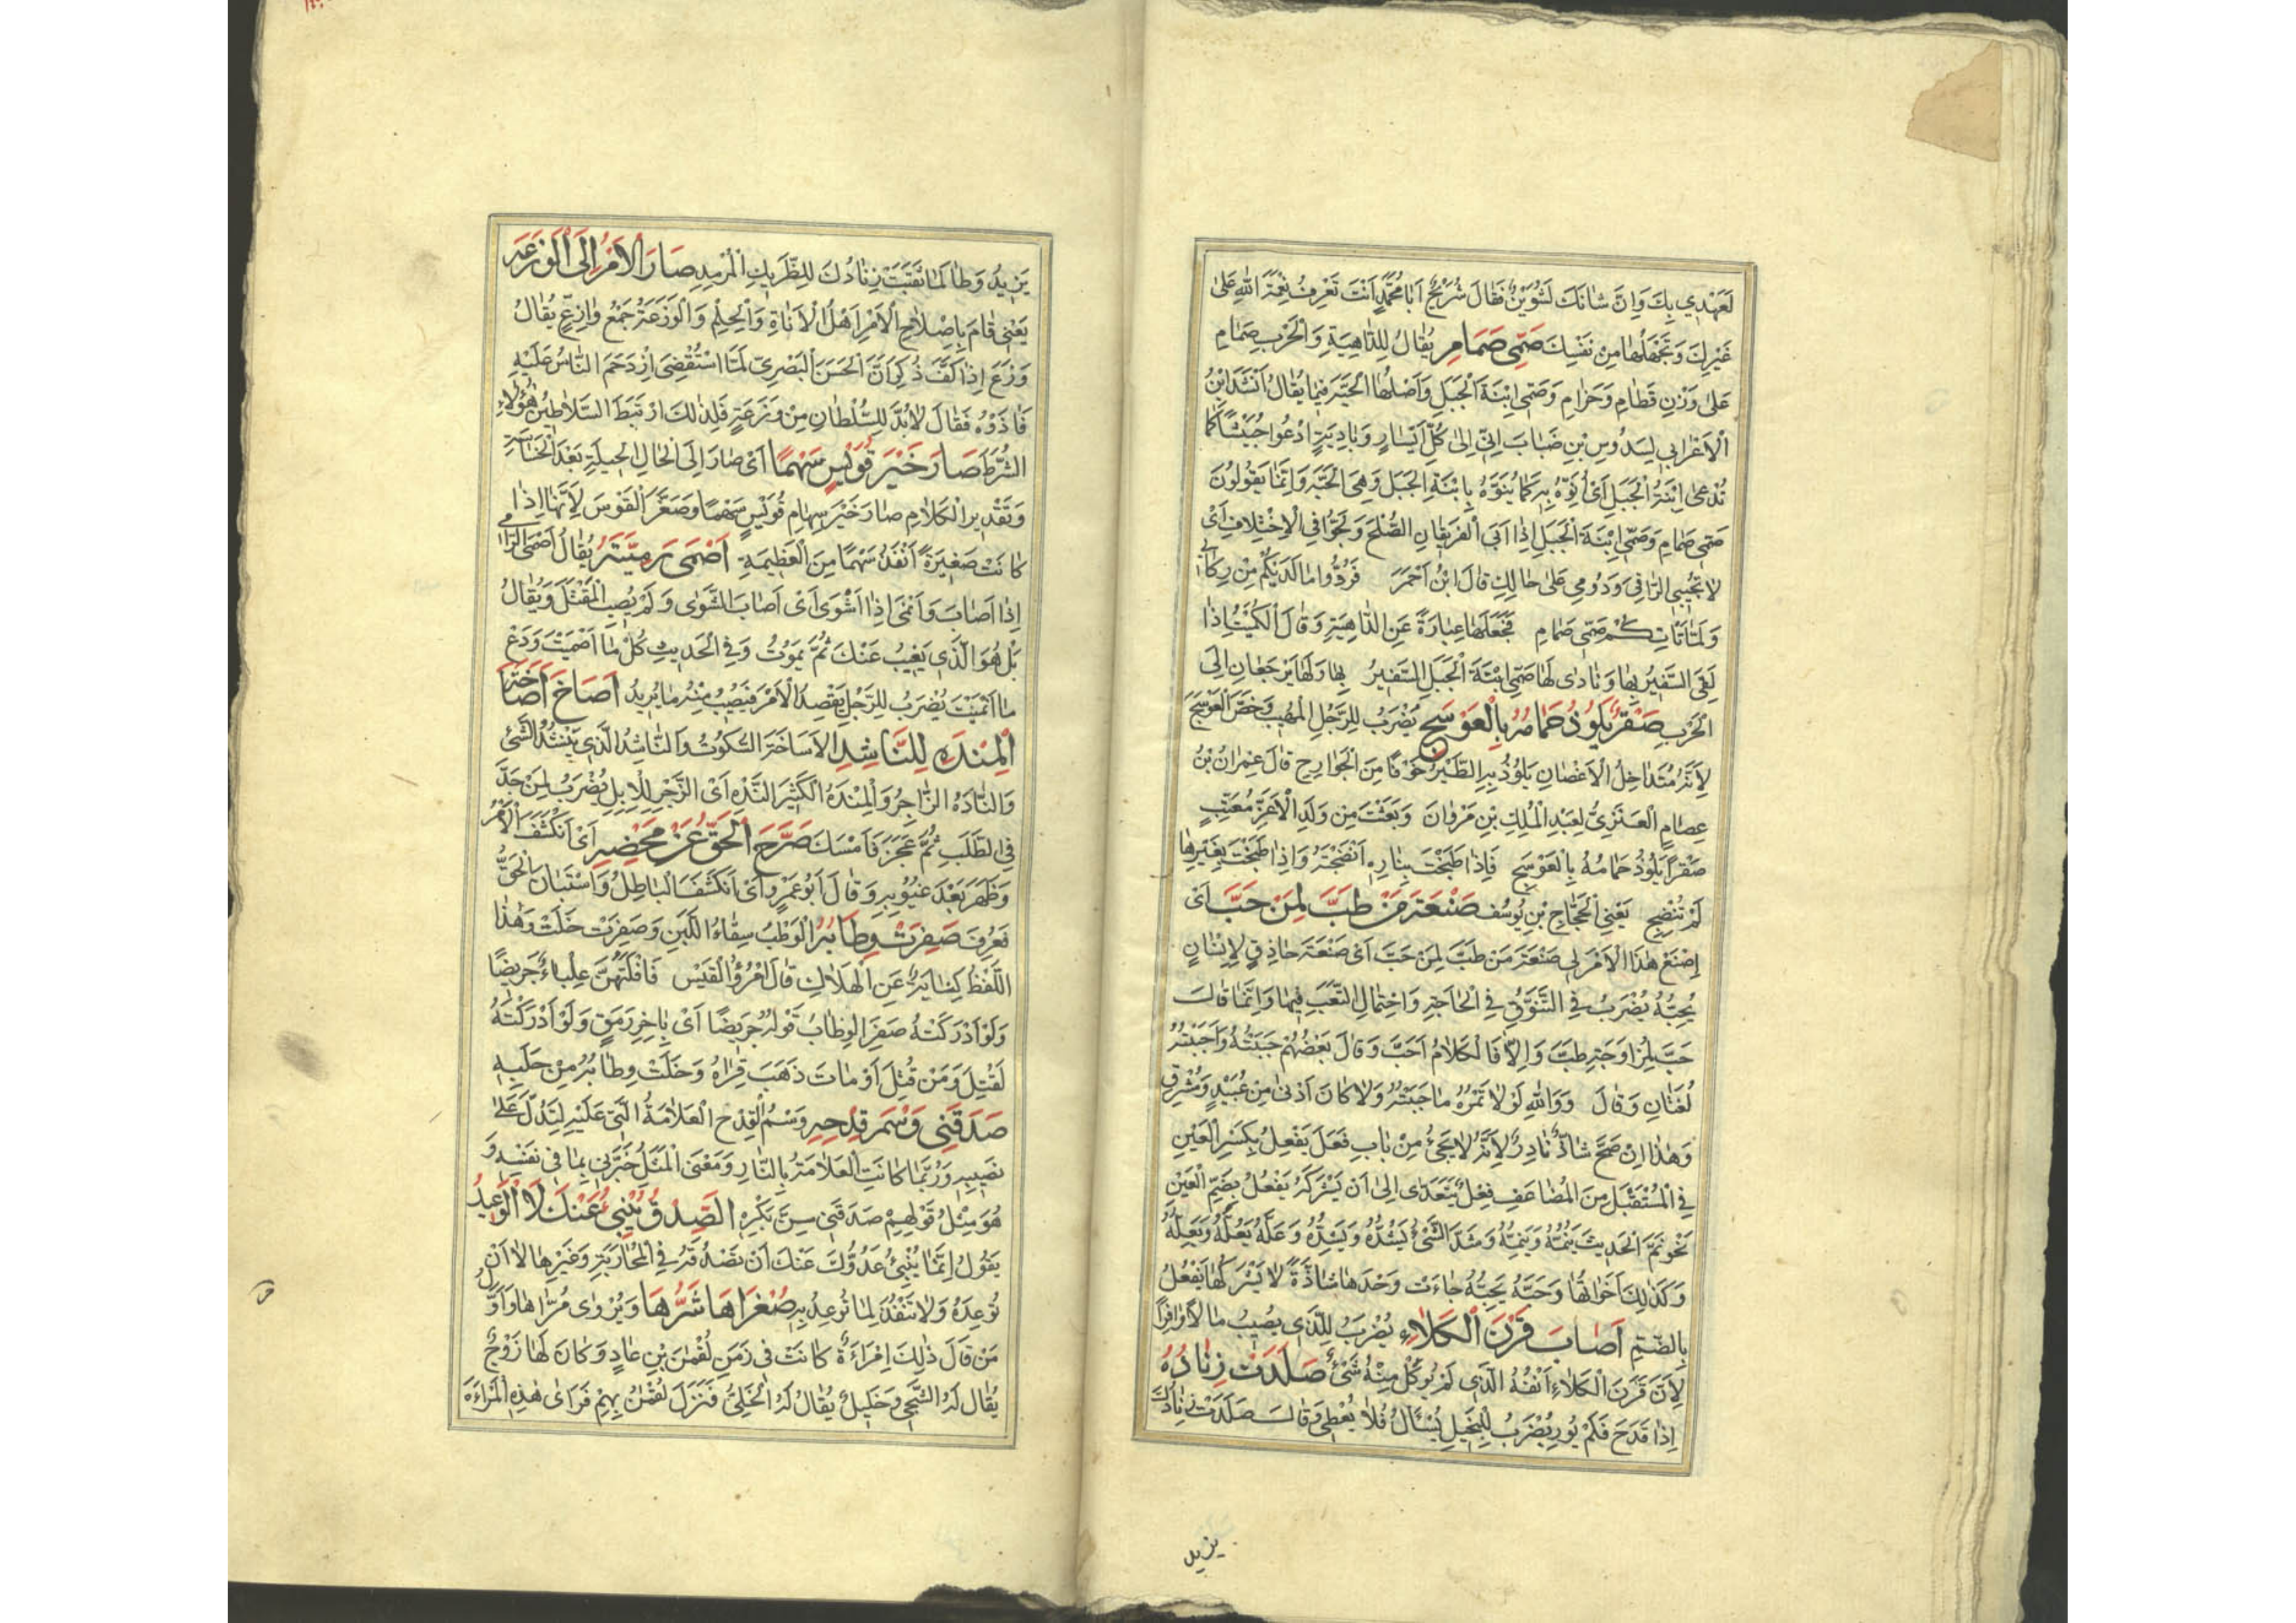 لَعَهْدِي بِكَ وَاِنَّ شَانَكَ لَشُوَيْنٌ فَقَالَ شُرَيْحٌ اَبَا مُحَمَّدٍ اَنْتَ تَعْرِفُ نِعْمَةَ اللّٰهِ عَلٰى
غَيْرِكَ وَتَجْهَلُهَا مِنْ نَفْسِكَ صَمِّي صَمَامِ يُقَالُ لِلدَّاهِيَةِ وَالْحَرْبِ صَمَامِ
عَلٰى وَزْنِ قَطَامِ وَحَزَامِ وَصَمِّى ابْنَةَ الْجَبَلِ وَاَصْلُهَا الْحَيَّةُ فِيمَا يُقَالُ اَنْشَدَ ابْنُ
الْاَعْرَابِي لِسَدُوسِ بْنِ ضَبَابَ اِنِّي اِلٰى كُلِّ اَيْسَارٍ وَبَادِيَةٍ اَدْعُوا حُبَيْشًا كَمَا
تُدْعٰى ابْنَةُ الْجَبَلِ اَىْ اُنَوِّهُ بِهِ كَمَا يُنَوَّهُ بِابْنَةِ الْجَبَلِ وَهِىَ الْحَيَّةُ وَاِنَّمَا يَقُولُونَ
صَمِّى صَمَامِ وَصَمِّى ابْنَةَ الْجَبَلِ اِذَا اَبَى الْفَرِيقَانِ الصُّلْحَ وَلَجُّوا فِي الْاِخْتِلَافِ اَىْ
لَا تُجِيبِى الرَّاقِى وَدُومِى عَلٰى حَالِكِ قَالَ ابْنُ اَحْمَرَ فَرُدُّوا مَا لَدَيْكُمْ مِنْ رِكَابِي
وَلَمَّا تَاتِكُمْ صَمِّى صَمَامِ فَجَعَلَهَا عِبَارَةً عَنِ الدَّاهِيَةِ وَقَالَ الْكُمَيْتُ اِذَا
لَقِىَ السَّفِيرُ بِهَا وَنَادٰى لَهَا صَمِّى ابْنَةَ الْجَبَلِ السَّفِيرُ بِهَا وَلَهَا يَرْجِعَانِ اِلَى
الْحَرْبِ صَقْرٌ يَلُوذُ حَمَامُهُ بِالْعَوْسَجِ يُضْرَبُ لِلرَّجُلِ الْمَهِيبِ وَخَصَّ الْعَوْسَجَ
لِاَنَّهُ مُتَدَاخِلُ الْاَغْصَانِ يَلُوذُ بِهِ الطَّيْرُ خَوْفًا مِنَ الْجَوَارِحِ قَالَ عِمْرَانُ بْنُ
عِصَامٍ الْعَنَزِىُّ لِعَبْدِ الْمَلِكِ بْنِ مَرْوَانَ وَبَعَثْتَ مِنْ وَلَدِ الْاَغَرِّ مُعَتِّبٍ
صَقْرًا يَلُوذُ حَمَامُهُ بِالْعَوْسَجِ فَاِذَا طَبَخْتَ بِنَارِهِ اَنْضَجْتَهُ وَاِذَا طَبَخْتَ بِغَيْرِهَا
لَمْ تُنْضِجِ يَعْنِى الْحَجَّاجَ بْنَ يُوسُفَ صَنْعَةَ مَنْ طَبَّ لِمَنْ حَبَّ اَىْ
اِصْنَعْ هٰذَا الْاَمْرَ لِى صَنْعَةَ مَنْ طَبَّ لِمَنْ حَبَّ اَىْ صَنْعَةَ حَاذِقٍ لِاِنْسَانٍ
يُحِبُّهُ يُضْرَبُ فِى التَّنَوُّقِ فِى الْحَاجَةِ وَاحْتِمَالِ التَّعَبِ فِيهَا وَاِنَّمَا قَالَ
حَبَّ لِمُزَاوَجَةِ طَبَّ وَاِلَّا فَالْكَلَامُ اَحَبَّ وَقَالَ بَعْضُهُمْ حَبَبْتُهُ وَاَحْبَبْتُهُ
لُغَتَانِ وَقَالَ وَوَاللّٰهِ لَوْلَا تَمْرُهُ مَا حَبَبْتُهُ وَلَا كَانَ اَدْنٰى مِنْ عُبَيْدٍ وَمُشْرِقِ
وَهٰذَا اِنْ صَحَّ شَاذٌّ نَادِرٌ لِاَنَّهُ لَا يَجِىءُ مِنْ بَابِ فَعَلَ يَفْعِلُ بِكَسْرِ الْعَيْنِ
فِى الْمُسْتَقْبَلِ مِنَ الْمُضَاعَفِ فِعْلٌ يَتَعَدَّى اِلٰى اَنْ يَشْرَكَهُ يَفْعُلُ بِضَمِّ الْعَيْنِ
نَحْوُ نَمَّ الْحَدِيثَ يَنُمُّهُ وَيَنِمُّهُ وَشَدَّ الشَّىْءَ يَشُدُّهُ وَيَشِدُّهُ وَعَلَّهُ يَعُلُّهُ وَيَعِلُّهُ
وَكَذٰلِكَ اَخَوَاتُهَا وَحَبَّهُ يَحِبُّهُ جَاءَتْ وَحْدَهَا شَاذَّةً لَا يَشْرَكُهَا يَفْعُلُ
بِالضَّمِّ اَصَابَ قَرْنَ الْكَلَاءِ يُضْرَبُ لِلَّذِى يُصِيبُ مَالًا وَافِرًا
لِاَنَّ قَرْنَ الْكَلَاءِ اَنْفُهُ الَّذِى لَمْ يُوكَلْ مِنْهُ شَىْءٌ صَلَدَتْ زِنَادُهُ
اِذَا قَدَحَ فَلَمْ يُورِ يُضْرَبُ لِلْبَخِيلِ يُسْئَالُ فَلَا يُعْطِى وَقَالَ صَلَدَتْ زِنَادُكَ
يزيد
يَزِيدُ وَطَالَمَا نَقَبَتْ زِنَادُكَ لِلضَّرِيكِ الْمُرْمِدِ صَارَ الْاَمْرُ اِلَى الْوَزَعَةِ
يَعْنِى قَامَ بِاِصْلَاحِ الْاَمْرِ اَهْلُ الْاَنَاةِ وَالْحِلْمِ وَالْوَزَعَةُ جَمْعُ وَازِعٍ يُقَالُ
وَزَعَ اِذَا كَفَّ ذُكِرَ اَنَّ الْحَسَنَ الْبَصْرِىَّ لَمَّا اسْتُقْضِىَ ازْدَحَمَ النَّاسُ عَلَيْهِ
فَاٰذَوْهُ فَقَالَ لَا بُدَّ لِلسُّلْطَانِ مِنْ وَزَعَةٍ فَلِذٰلِكَ ارْتَبَطَ السَّلَاطِينُ هٰؤُلَاءِ
الشُّرَطَ صَارَ خَيْرَ قُوَيْسٍ سَهْمًا اَىْ صَارَ اِلَى الْحَالِ الْجَمِيلَةِ بَعْدَ الْخَسَاسَةِ
وَتَقْدِيرُ الْكَلَامِ صَارَ خَيْرَ سِهَامِ قُوَيْسٍ سَهْمًا وَصَغَّرَ الْقَوْسَ لِاَنَّهَا اِذَا
كَانَتْ صَغِيرَةً اَنْفَذُ سَهْمًا مِنَ الْعَظِيمَةِ اَصْمَى رَمِيَّتَهُ يُقَالُ اَصْمَى الرَّامِى
اِذَا اَصَابَ وَاَنْمَى اِذَا اَشْوَى اَىْ اَصَابَ الشَّوٰى وَلَمْ يُصِبِ الْمَقْتَلَ وَيُقَالُ
بَلْ هُوَ الَّذِى يَغِيبُ عَنْكَ ثُمَّ يَمُوتُ وَفِى الْحَدِيثِ كُلْ مَا اَصْمَيْتَ وَدَعْ
مَا اَنْمَيْتَ يُضْرَبُ لِلرَّجُلِ يَقْصِدُ الْاَمْرَ فَيُصِيبُ مِنْهُ مَا يُرِيدُ اَصَاخَ اَصَاخَةَ
الْمِنْدَهِ لِلنَّاشِدِ الْاَسَاخَةُ السُّكُوتُ وَالنَّاشِدُ الَّذِى يَنْشُدُ الشَّىْءَ
وَالنَّادِهُ الزَّاجِرُ وَالْمِنْدَهُ الْكَثِيرُ النَّدْهِ اَىِ الزَّجْرِ لِلْاِبِلِ يُضْرَبُ لِمَنْ جَدَّ
فِى الطَّلَبِ ثُمَّ عَجَزَ فَاَمْسَكَ صَرَّحَ الْحَقُّ عَنْ مَحْضِهِ اَىْ انْكَشَفَ الْاَمْرُ
وَظَهَرَ بَعْدَ غُيُوبِهِ وَقَالَ اَبُو عَمْرٍو اَىْ انْكَشَفَ الْبَاطِلُ وَاسْتَبَانَ الْحَقُّ
فَعُرِفَ صَفِرَتْ وِطَابُهُ الْوَطْبُ سِقَاءُ اللَّبَنِ وَصَفِرَتْ خَلَتْ وَهٰذَا
اللَّفْظُ كِنَايَةٌ عَنِ الْهَلَاكِ قَالَ امْرُؤُ الْقَيْسِ فَاَفْلَتَهُنَّ عِلْبَاءٌ جَرِيضًا
وَلَوْ اَدْرَكْتُهُ صَفِرَ الْوِطَابُ قَوْلُهُ جَرِيضًا اَىْ بِاٰخِرِ رَمَقٍ وَلَوْ اَدْرَكْتُهُ
لَقُتِلَ وَمَنْ قُتِلَ اَوْ مَاتَ ذَهَبَ قِرَاهُ وَخَلَتْ وِطَابُهُ مِنْ حَلَبِهِ
صَدَقَنِى وَسْمَ قِدْحِهِ وَسْمُ الْقِدْحِ الْعَلَامَةُ الَّتِى عَلَيْهِ لِتَدُلَّ عَلٰى
نَصِيبِهِ وَرُبَّمَا كَانَتِ الْعَلَامَةُ بِالنَّارِ وَمَعْنَى الْمَثَلِ خَبَّرَنِى بِمَا فِى نَفْسِهِ وَ
هُوَ مِثْلُ قَوْلِهِمْ صَدَقَنِى سِنَّ بَكْرِهِ الصِّدْقُ يُنْبِئُ عَنْكَ لَا الْوَعِيدُ
يَقُولُ اِنَّمَا يُنْبِئُ عَدُوَّكَ عَنْكَ اَنْ تَصْدُقَهُ فِى الْمُحَارَبَةِ وَغَيْرِهَا لَا اَنْ
تُوعِدَهُ وَلَا تَنْفُذَ لِمَا تُوعِدُ بِهِ صُغْرَاهَا شَرُّهَا وَيُرْوٰى مُرَّاهَا وَاَوَّلُ
مَنْ قَالَ ذٰلِكَ اِمْرَاءَةٌ كَانَتْ فِى زَمَنِ لُقْمٰنَ بْنِ عَادٍ وَكَانَ لَهَا زَوْجٌ
يُقَالُ لَهُ الشَّجِى وَخَلِيلٌ يُقَالُ لَهُ الْخَلِىُّ فَنَزَلَ لُقْمٰنُ بِهِمْ فَرَاٰى هٰذِهِ الْمَرْاَةَ